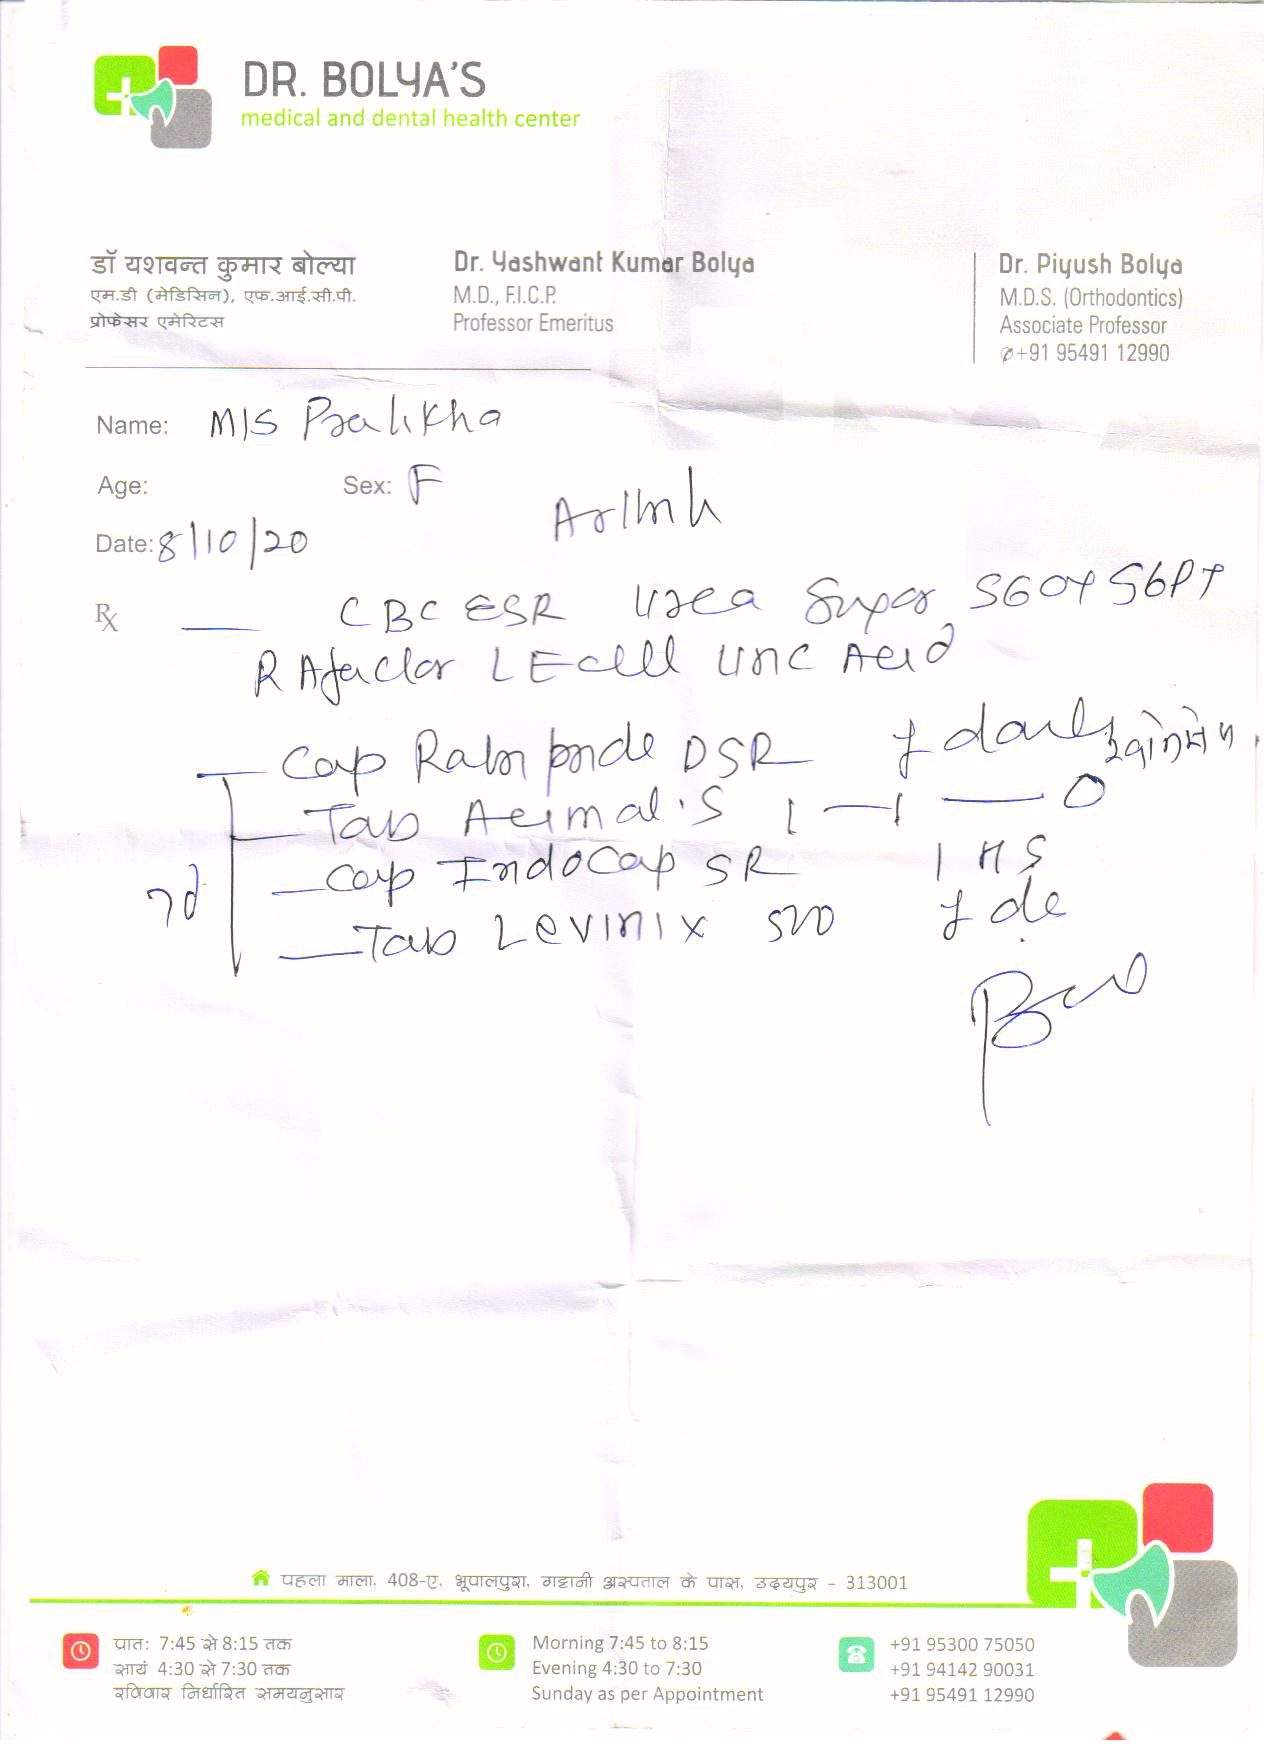 DR. BOLYA'S
medical and dental health center
डॉ यशवन्त कुमार बोल्या
एम.डी (मेडिसिन), एफ.आई.सी.पी.
प्रोफेसर एमेरिटस
Dr. Yashwant Kumar Bolya
M.D., F.I.C.P.
Professor Emeritus
Dr. Piyush Bolya
M.D.S. (Orthodontics)
Associate Professor
+91 95491 12990
Name: M/S
Age: Sex: F
Date: 8/10/20
Rx CBC ESR Urea Sugar SGOT SGPT
RA factor LE cell Uric Acid
Cap DSR daily
Tab 1 — 1 — 0
Cap Indocap SR 1 HS
7d
Tab Levinix 500
पहला माला, 408-ए, भूपालपुरा, गडानी अस्पताल के पास, उदयपुर - 313001
प्रात: 7:45 से 8:15 तक
सायं 4:30 से 7:30 तक
रविवार निर्धारित समयनुसार
Morning 7:45 to 8:15
Evening 4:30 to 7:30
Sunday as per Appointment
+91 95300 75050
+91 94142 90031
+91 95491 12990